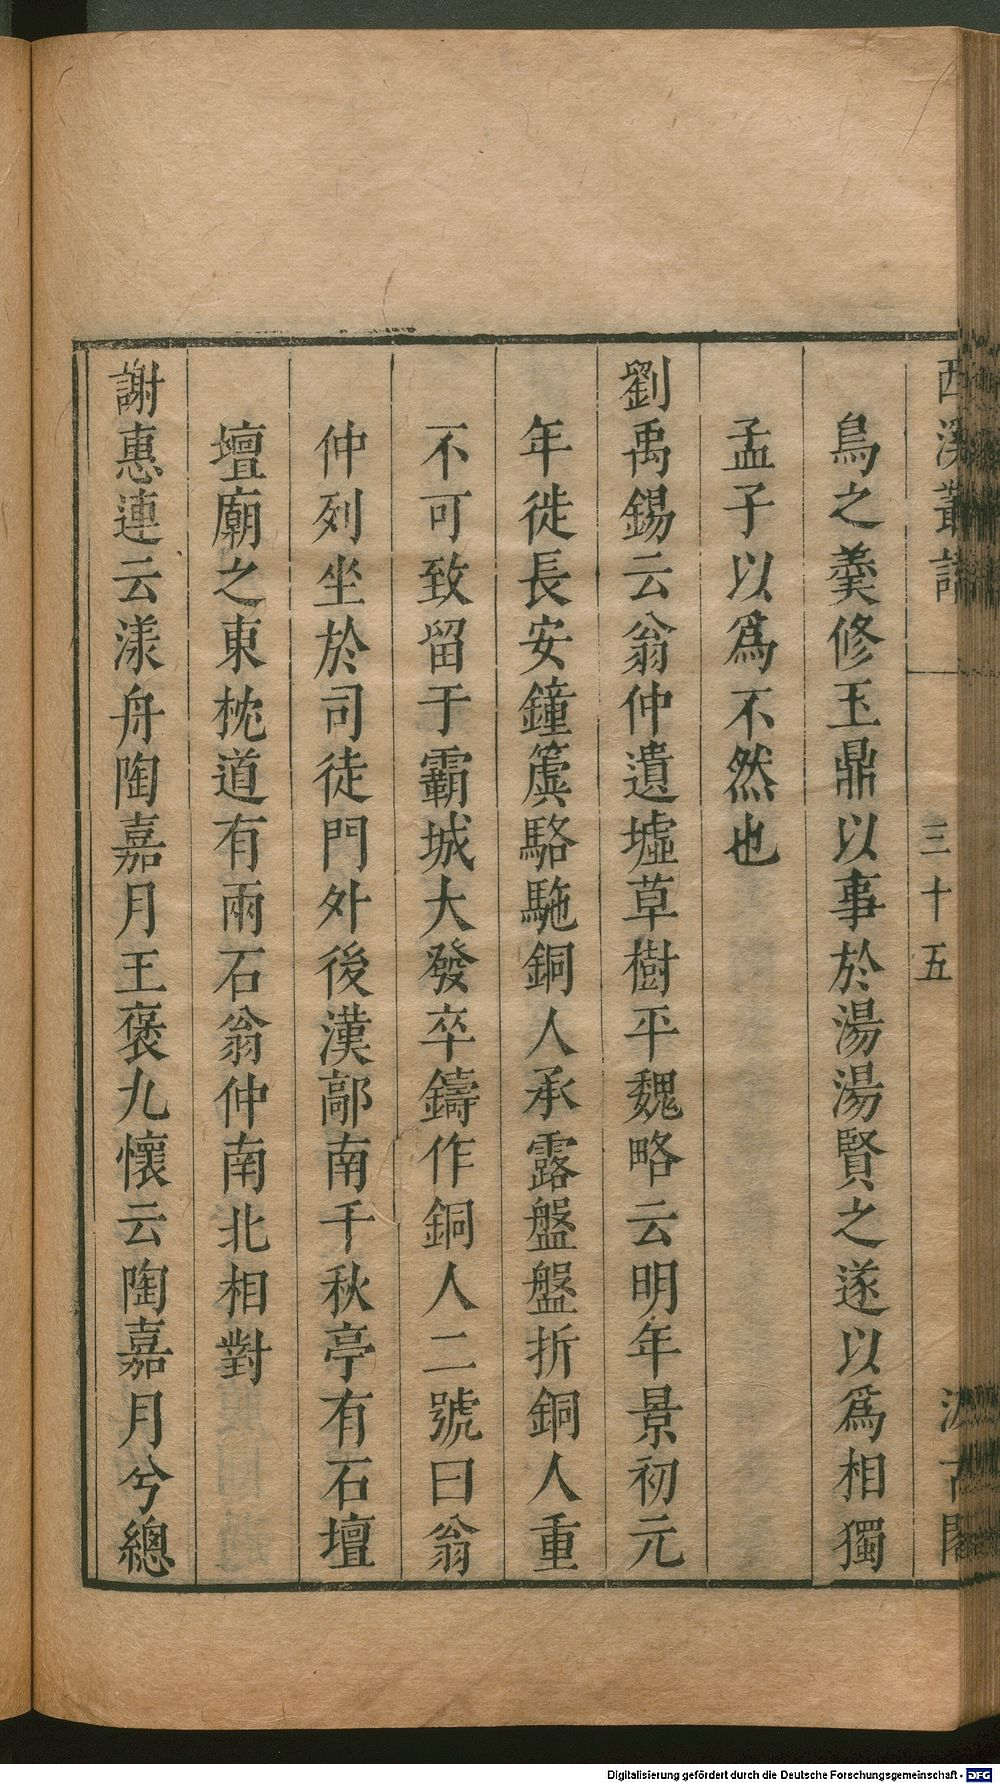 西溪叢語 三十五 汲古閣
鳥之羹修玉鼎以事於湯湯賢之遂以爲相獨
孟子以爲不然也
劉禹錫云翁仲遺墟草樹平魏略云明年景初元
年徙長安鐘簴駱駞銅人承露盤盤折銅人重
不可致留于霸城大發卒鑄作銅人二號曰翁
仲列坐於司徒門外後漢鄗南千秋亭有石壇
壇廟之東枕道有兩石翁仲南北相對
謝惠連云漾舟陶嘉月王褒九懷云陶嘉月兮總
Digitalisierung gefördert durch die Deutsche Forschungsgemeinschaft - DFG